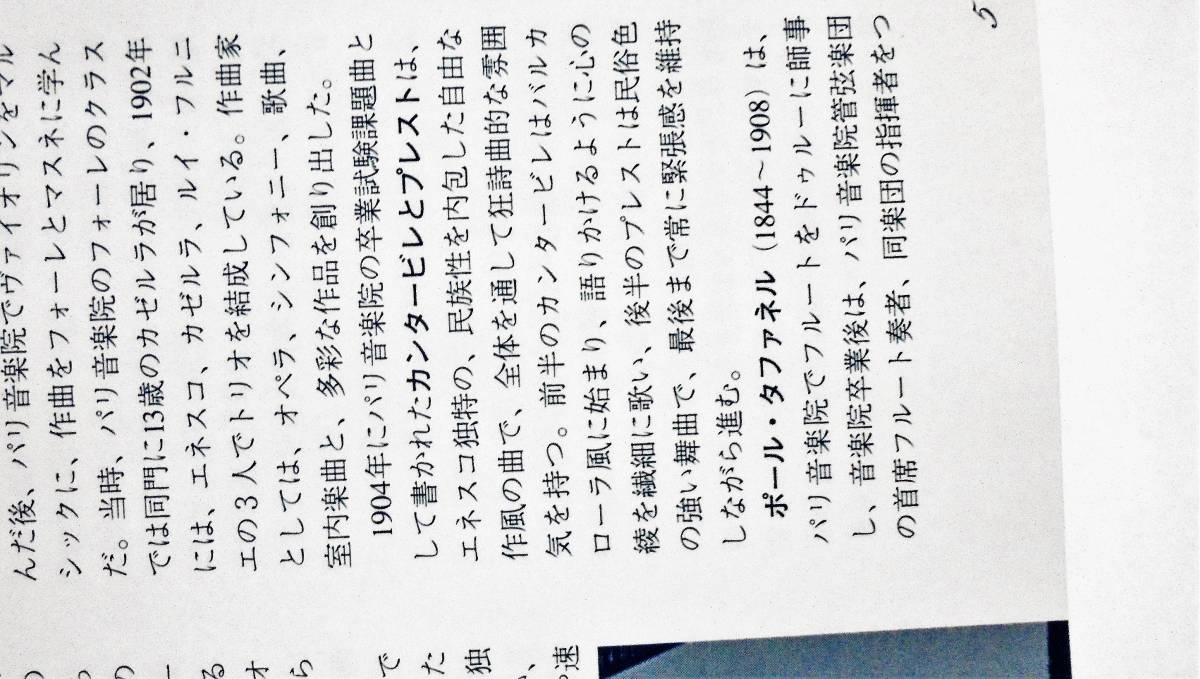 んだ後、パリ音楽院でヴァイオリンをマル
シックに、作曲をフォーレとマスネに学ん
だ。当時、パリ音楽院のフォーレのクラス
では同門に13歳のカゼルラが居り、1902年
には、エネスコ、カゼルラ、ルイ・フルニ
エの3人でトリオを結成している。作曲家
としては、オペラ、シンフォニー、歌曲、
室内楽曲と、多彩な作品を創り出した。
1904年にパリ音楽院の卒業試験課題曲と
して書かれたカンタービレとプレストは、
エネスコ独特の、民族性を内包した自由な
作風の曲で、全体を通して狂詩曲的な雰囲
気を持つ。前半のカンタービレはバルカ
ローラ風に始まり、語りかけるように心の
綾を繊細に歌い、後半のプレストは民俗色
の強い舞曲で、最後まで常に緊張感を維持
しながら進む。
ポール・タファネル（1844～1908）は、
パリ音楽院でフルートをドゥルーに師事
し、音楽院卒業後は、パリ音楽院管弦楽団
の首席フルート奏者、同楽団の指揮者をつ
5
の
る
オ
ら
で
た
独
速